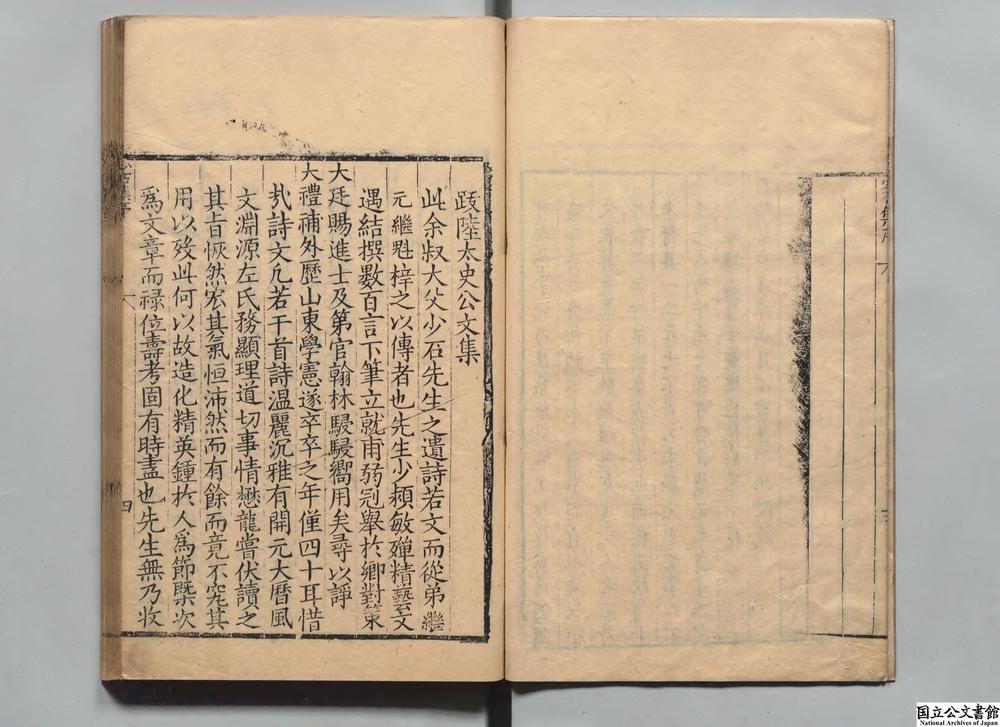 跋陸太史公文集
此余叔大父少石先生之遺詩若文而從弟繼
元繼魁梓之以傳者也先生少頴敏殫精藝文
遇結撰數百言下筆立就甫弱冠舉於鄉對策
大廷賜進士及第官翰林駸駸嚮用矣尋以諍
大禮補外歷山東學憲遂卒卒之年僅四十耳惜
㦲詩文凡若干首詩溫麗沉雅有開元大曆風
文淵源左氏務顯理道切事情懋龍嘗伏讀之
其旨恢然宏其氣恒沛然而有餘而竟不究其
用以歿此何以故造化精英鍾於人為節槩次
為文章而祿位壽考固有時盡也先生無乃收
四
国立公文書館
National Archives of Japan